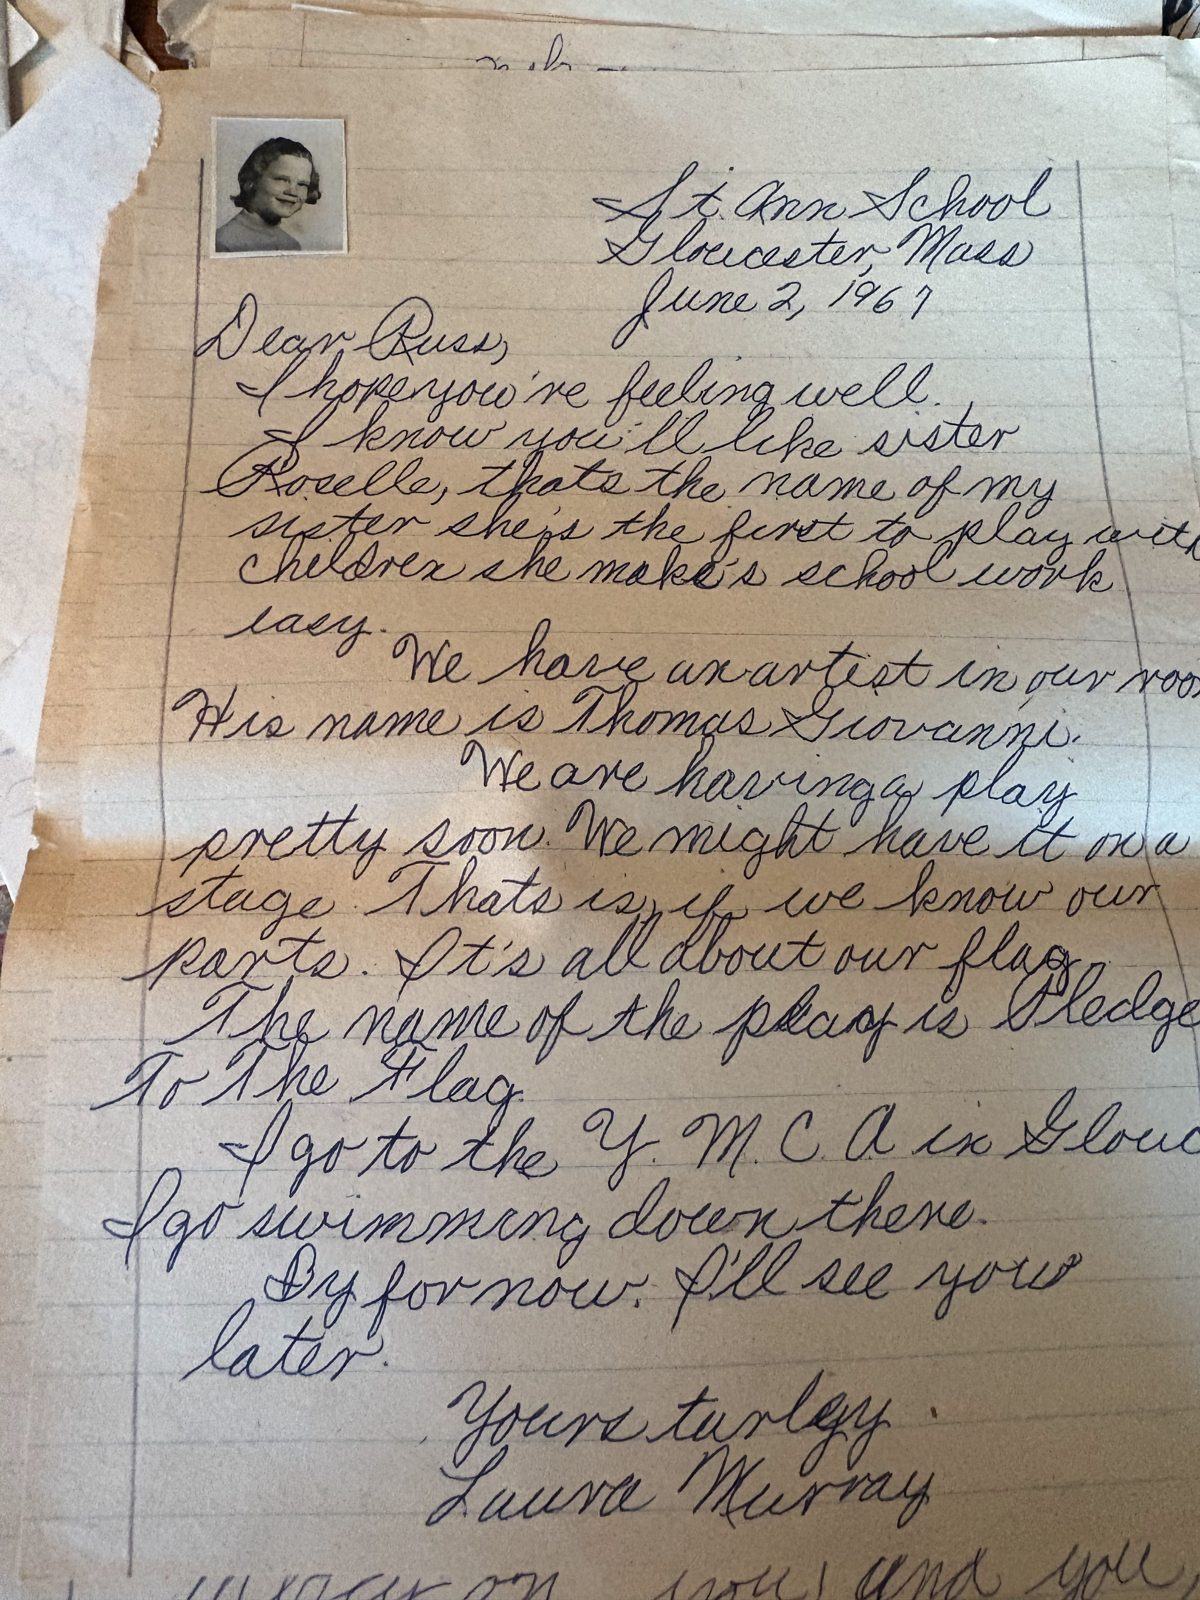 St. Ann School
Gloucester, Mass
June 2, 1967
Dear Russ,
I hope you're feeling well.
I know you'll like sister
Roselle, thats the name of my
sister she's the first to play with
children she make's school work
easy.
We have an artist in our room
His name is Thomas Giovanni.
We are having a play
pretty soon. We might have it on a
stage. Thats is, if we know our
parts. It's all about our flag.
The name of the play is Pledge
To The Flag.
I go to the Y. M. C. A in Glouc
I go swimming down there.
By for now. I'll see you
later.
Yours turlgy
Laura Murray
on you, and you,